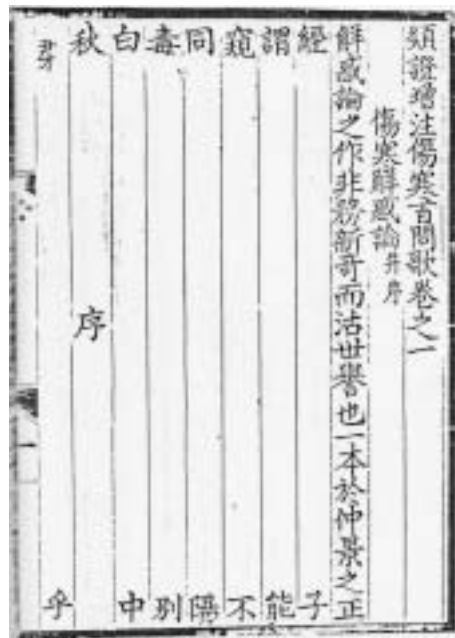 類證增注傷寒百問歌卷之一
傷寒解惑論并序
解惑論之作非務新奇而沽世譽也一本於仲景之正
經 子
謂 能
窺 不
同
毒 別
白 中
秋 序
乎